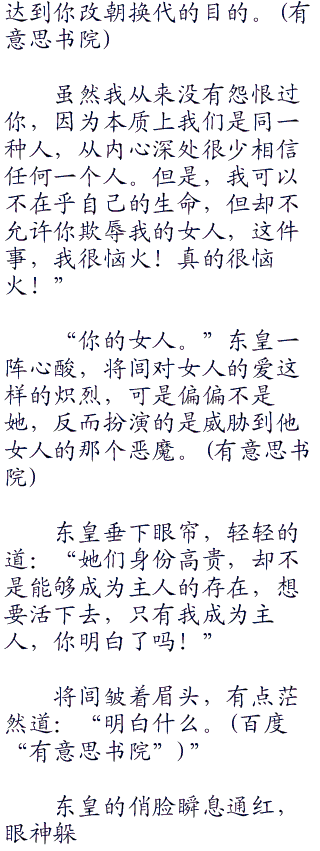 达到你改朝换代的目的。(有
意思书院)
虽然我从来没有怨恨过
你，因为本质上我们是同一
种人，从内心深处很少相信
任何一个人。但是，我可以
不在乎自己的生命，但却不
允许你欺辱我的女人，这件
事，我很恼火！真的很恼
火！”
“你的女人。”东皇一
阵心酸，将闾对女人的爱这
样的炽烈，可是偏偏不是
她，反而扮演的是威胁到他
女人的那个恶魔。(有意思书
院)
东皇垂下眼帘，轻轻的
道：“她们身份高贵，却不
是能够成为主人的存在，想
要活下去，只有我成为主
人，你明白了吗！”
将闾皱着眉头，有点茫
然道：“明白什么。(百度
“有意思书院”)”
东皇的俏脸瞬息通红，
眼神躲